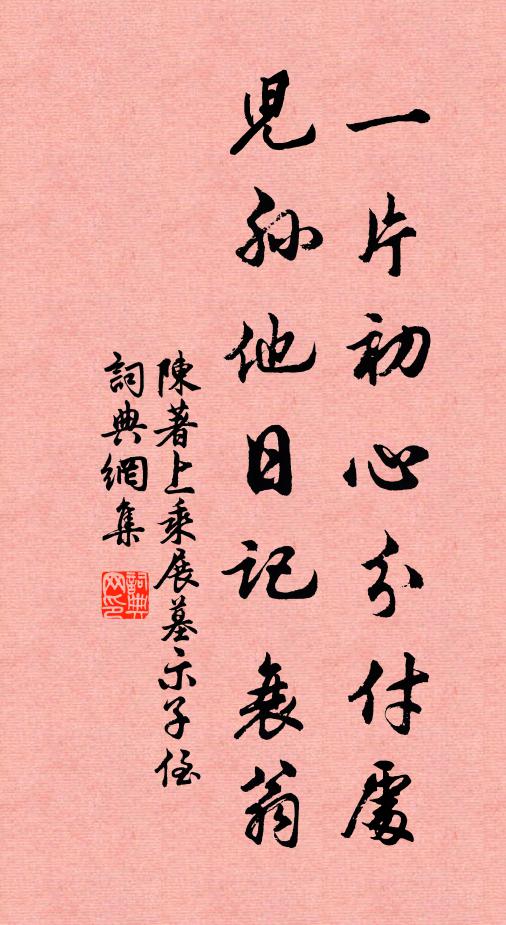 一片初心分付處
兒孫他日記衰翁
陳著上乘展墓示子侄
詞典網集
詞典网印